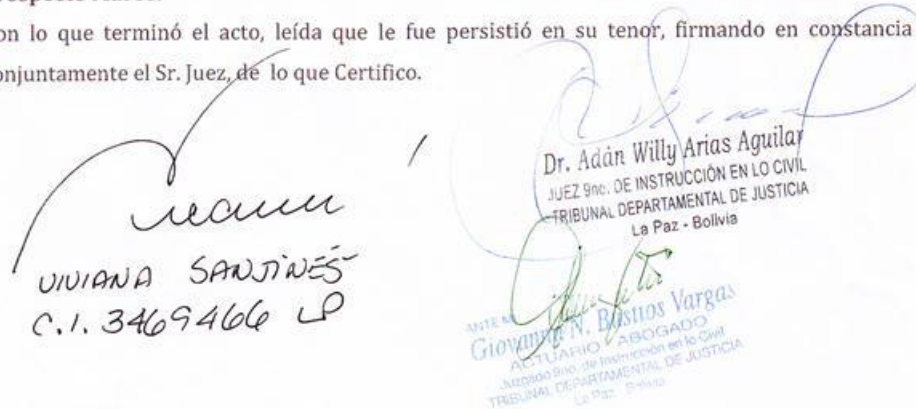 on lo que terminó el acto, leída que le fue persistió en su tenor, firmando en constancia
onjuntamente el Sr. Juez, de lo que Certifico.
VIVIANA SANJINÉS
C.I. 3469466 LP
Dr. Adán Willy Arias Aguilar
JUEZ 9no. DE INSTRUCCIÓN EN LO CIVIL
TRIBUNAL DEPARTAMENTAL DE JUSTICIA
La Paz - Bolivia
ANTE M
N. Bustios Vargas
ACTUARIO - ABOGADO
Juzgado 9no. de Instrucción en lo Civil
TRIBUNAL DEPARTAMENTAL DE JUSTICIA
La Paz - Bolivia